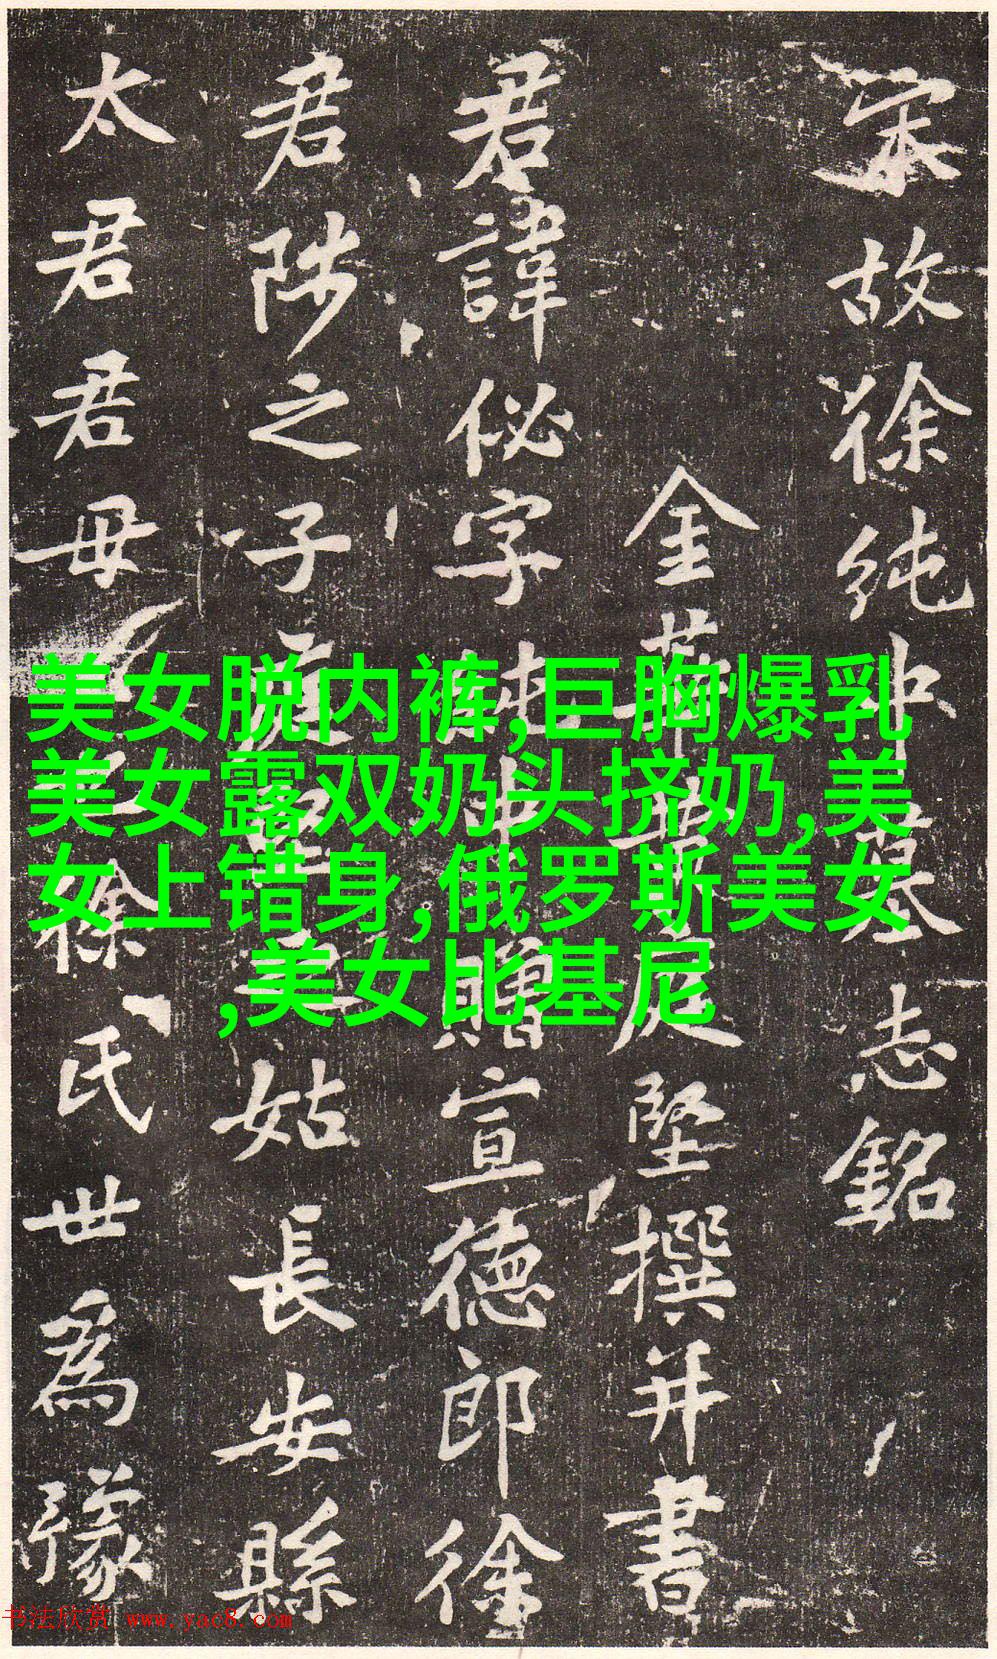 宋故徐纯中墓志銘
金華黄庭堅撰并書
君諱佖字純中贈宣德郎徐
君陟之子姑長安縣
太君君母徐氏世爲豫
美女脱内裤,巨胸爆乳
美女露双奶头挤奶,美
女上错身,俄罗斯美女
,美女比基尼
书法欣赏 www.yac8.com